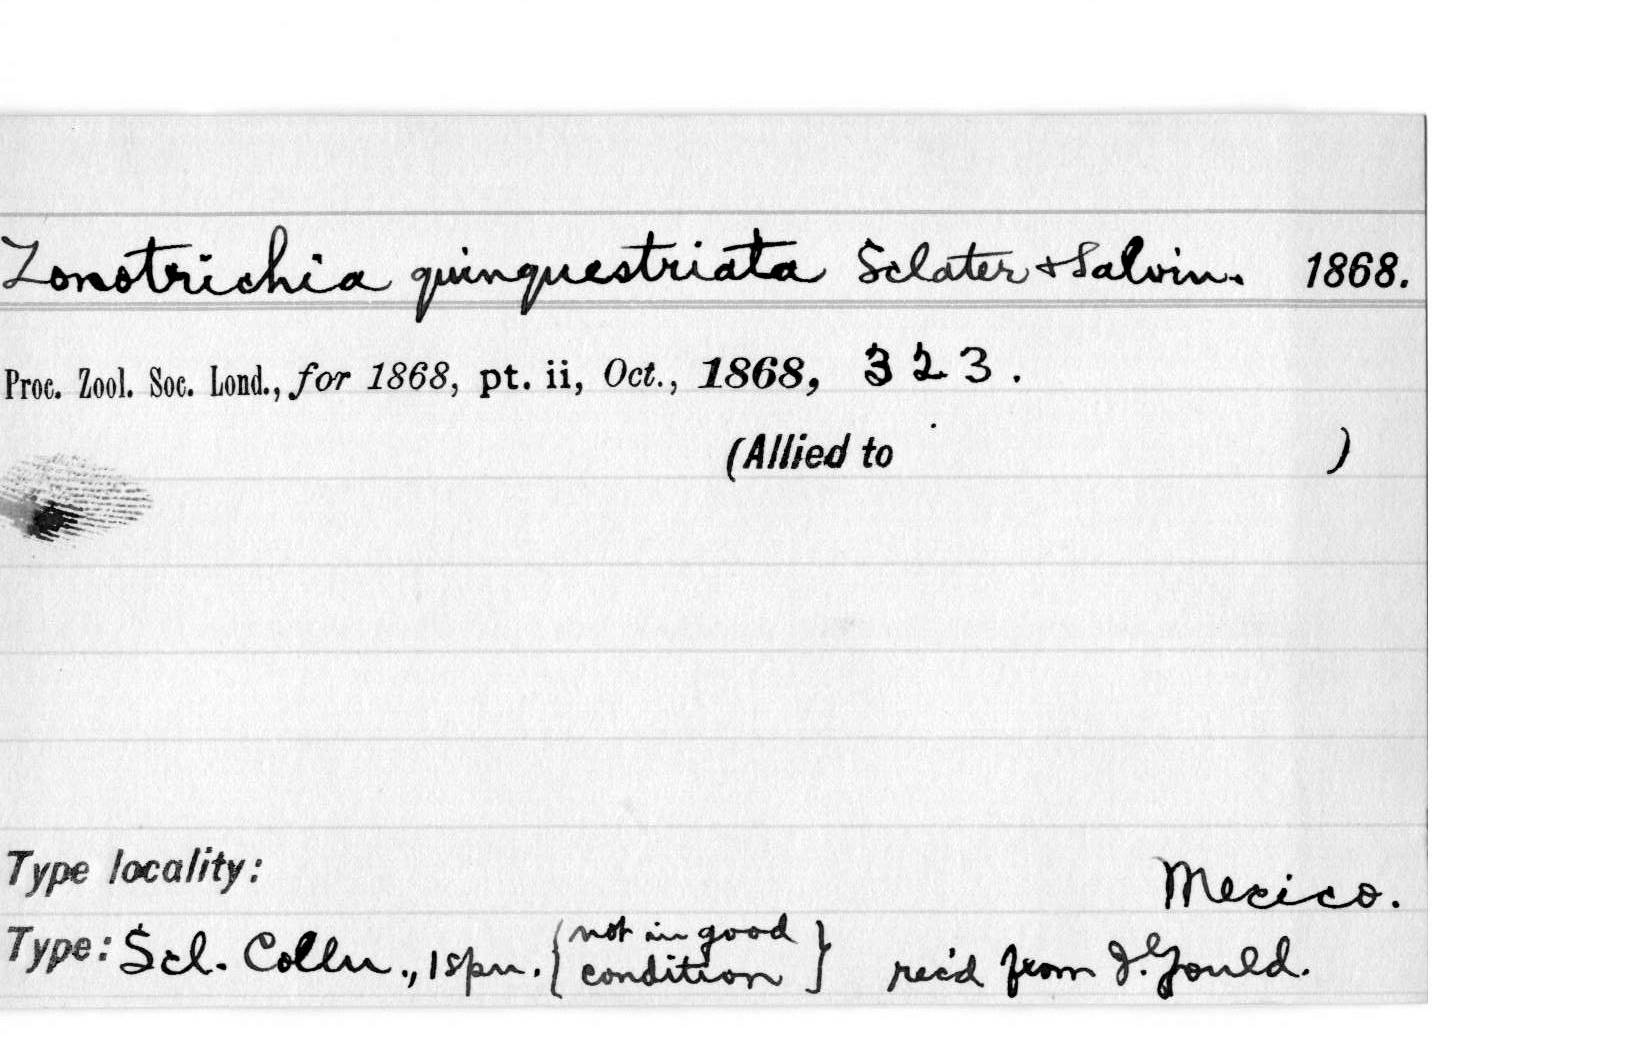 Zonotrichia quinquestriata Sclater + Salvin. 1868.
Proc. Zool. Soc. Lond., for 1868, pt. ii, Oct., 1868, 323.
(Allied to )
Type locality: Mexico.
Type: Scl. Colln., 1 spn. {not in good condition} rec'd from J. Gould.